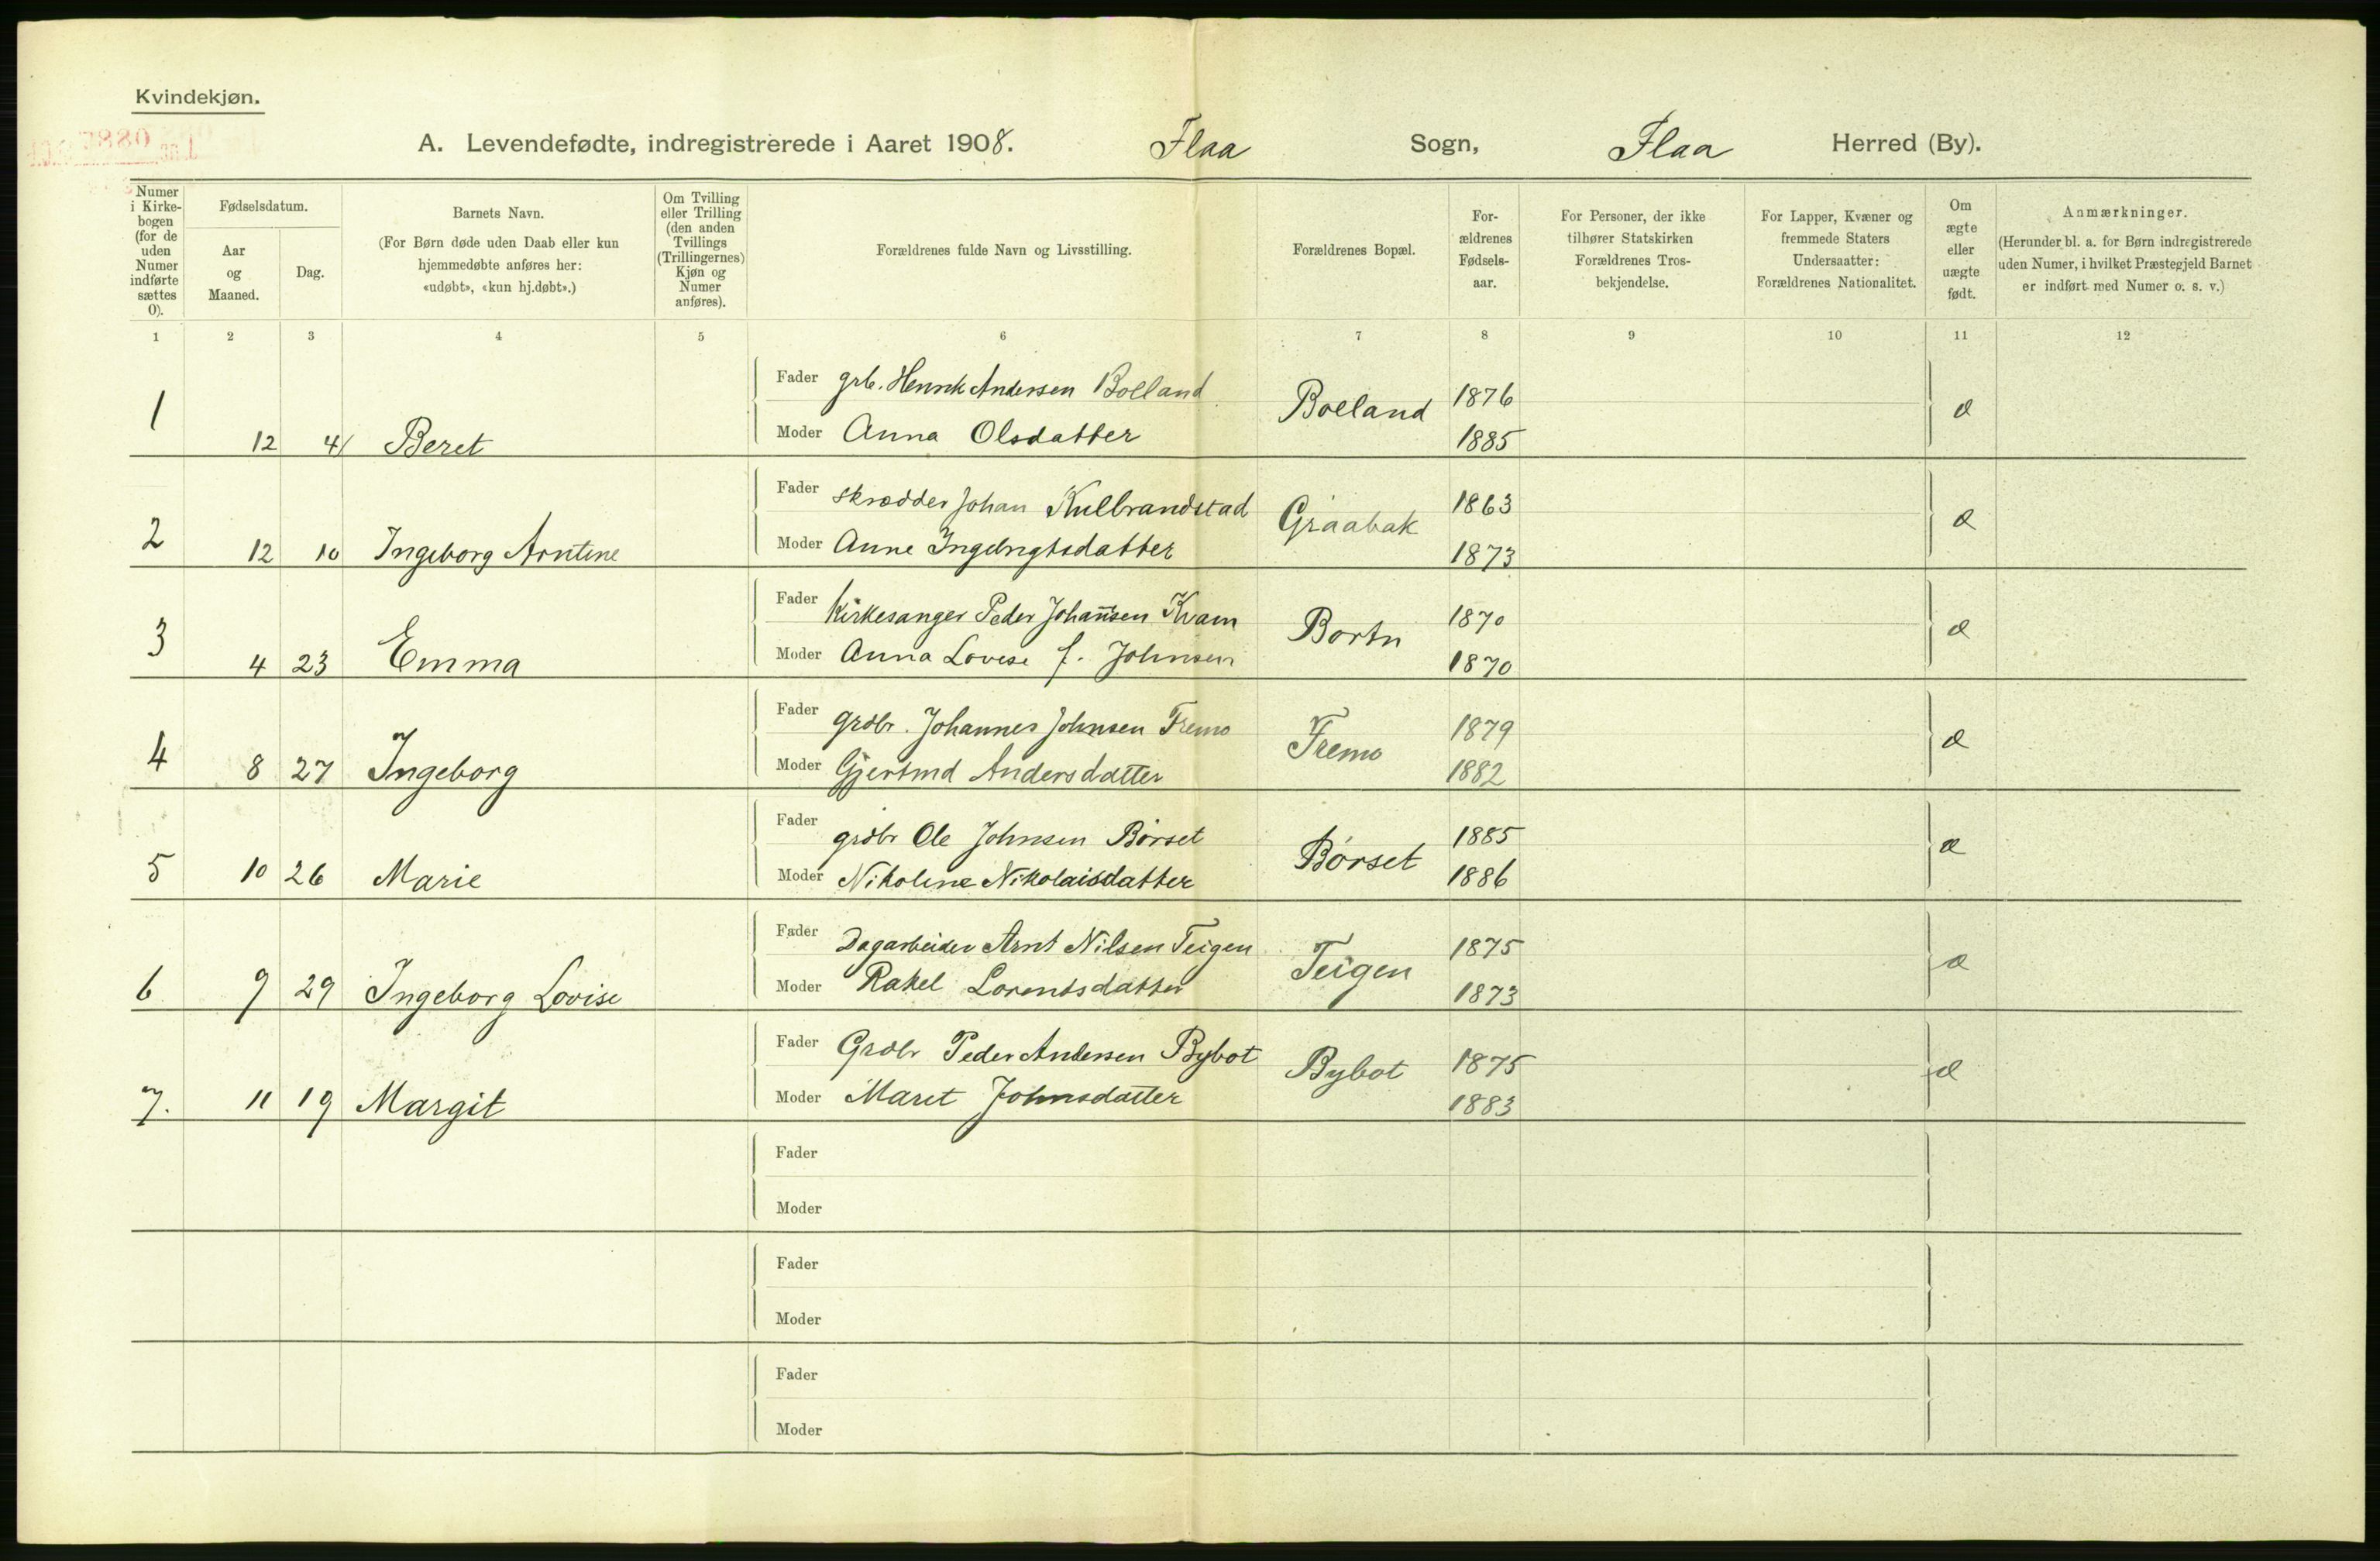 Kvindekjøn.
A. Levendefødte, indregistrerede i Aaret 1908. Flaa Sogn, Flaa Herred (By).
Numer i Kirkebogen (for de uden Numer indførte sættes 0).
Fødselsdatum.
Aar og Maaned.
Dag.
Barnets Navn.
(For Børn døde uden Daab eller kun
hjemmedøbte anføres her:
«udøbt», «kun hj.døbt».)
Om Tvilling
eller Trilling
(den anden
Tvillings
(Trillingernes)
Kjøn og
Numer
anføres).
Forældrenes fulde Navn og Livsstilling.
Forældrenes Bopæl.
For-
ældrenes
Fødsels-
aar.
For Personer, der ikke
tilhører Statskirken
Forældrenes Tros-
bekjendelse.
For Lapper, Kvæner og
fremmede Staters
Undersaatter:
Forældrenes Nationalitet.
Om
ægte
eller
uægte
født.
Anmærkninger.
(Herunder bl. a. for Børn indregistrerede
uden Numer, i hvilket Præstegjeld Barnet
er indført med Numer o. s. v.)
1 2 3 4 5 6 7 8 9 10 11 12
Fader grb. Henrik Andersen Bolland 1876
1 12 4 Beret Bolland æ
Moder Anna Olsdatter 1885
Fader skrædder Johan Kulbrandstad 1863
2 12 10 Ingeborg Arntine Graabak æ
Moder Anne Ingebrigtsdatter 1873
Fader Kirkesanger Peder Johansen Kvam 1870
3 4 23 Emma Bortn æ
Moder Anna Lovise f. Johnsen 1870
Fader grdbr. Johannes Johnsen Fremo 1879
4 8 27 Ingeborg Fremo æ
Moder Gjertrud Andersdatter 1882
Fader grdbr Ole Johnsen Børset 1885
5 10 26 Marie Børset æ
Moder Nikoline Nikolaisdatter 1886
Fader Dagarbeider Arnt Nilsen Teigen 1875
6 9 29 Ingeborg Lovise Teigen æ
Moder Rakel Lorentsdatter 1873
Fader Grdbr Peder Andersen Bybot 1875
7. 11 19 Margit Bybot æ
Moder Marit Johnsdatter 1883
Fader
Moder
Fader
Moder
Fader
Moder